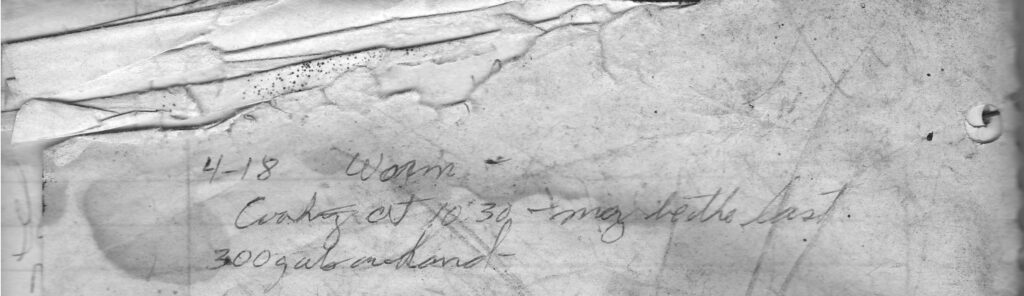 4-18 Warm -
Cooking at 10:30 - may be the last.
300 gals on hand -